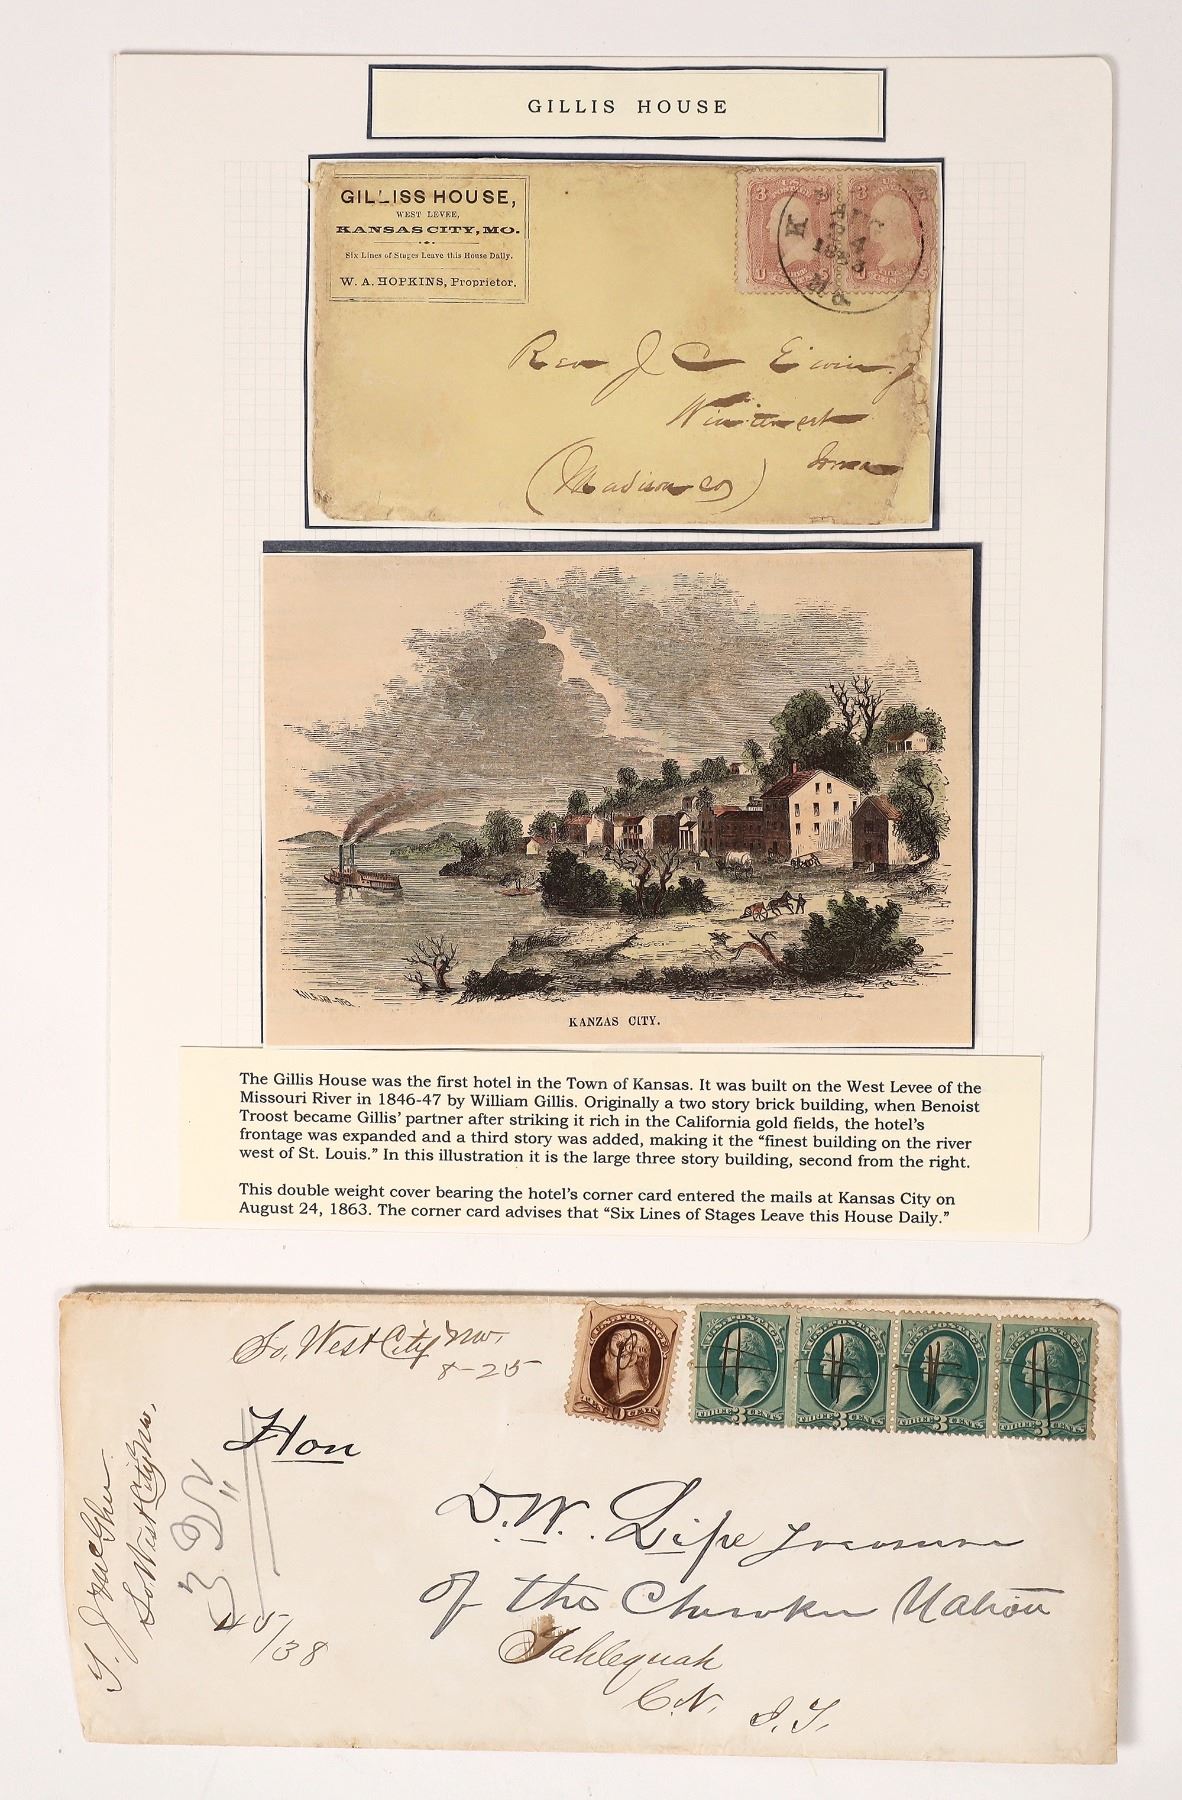 GILLIS HOUSE
GILLISS HOUSE,
WEST LEVEE,
KANSAS CITY, MO.
Six Lines of Stages Leave this House Daily.
W. A. HOPKINS, Proprietor.
3 3
U
1863
Rev J C Ewing
Winterset
Iowa
(Madison Co)
KANZAS CITY.
The Gillis House was the first hotel in the Town of Kansas. It was built on the West Levee of the
Missouri River in 1846-47 by William Gillis. Originally a two story brick building, when Benoist
Troost became Gillis' partner after striking it rich in the California gold fields, the hotel's
frontage was expanded and a third story was added, making it the "finest building on the river
west of St. Louis." In this illustration it is the large three story building, second from the right.
This double weight cover bearing the hotel's corner card entered the mails at Kansas City on
August 24, 1863. The corner card advises that "Six Lines of Stages Leave this House Daily."
So, West City Mo,
8-25
U.S. POSTAGE
TEN 10 CENTS
U.S. POSTAGE
THREE 3 CENTS
U.S. POSTAGE
THREE 3 CENTS
U.S. POSTAGE
THREE 3 CENTS
U.S. POSTAGE
THREE 3 CENTS
Hon
D. W. Lipe Treasurer
of the Cherokee Nation
Tahlequah
C. N. I. T.
So, West City Mo,
45/138